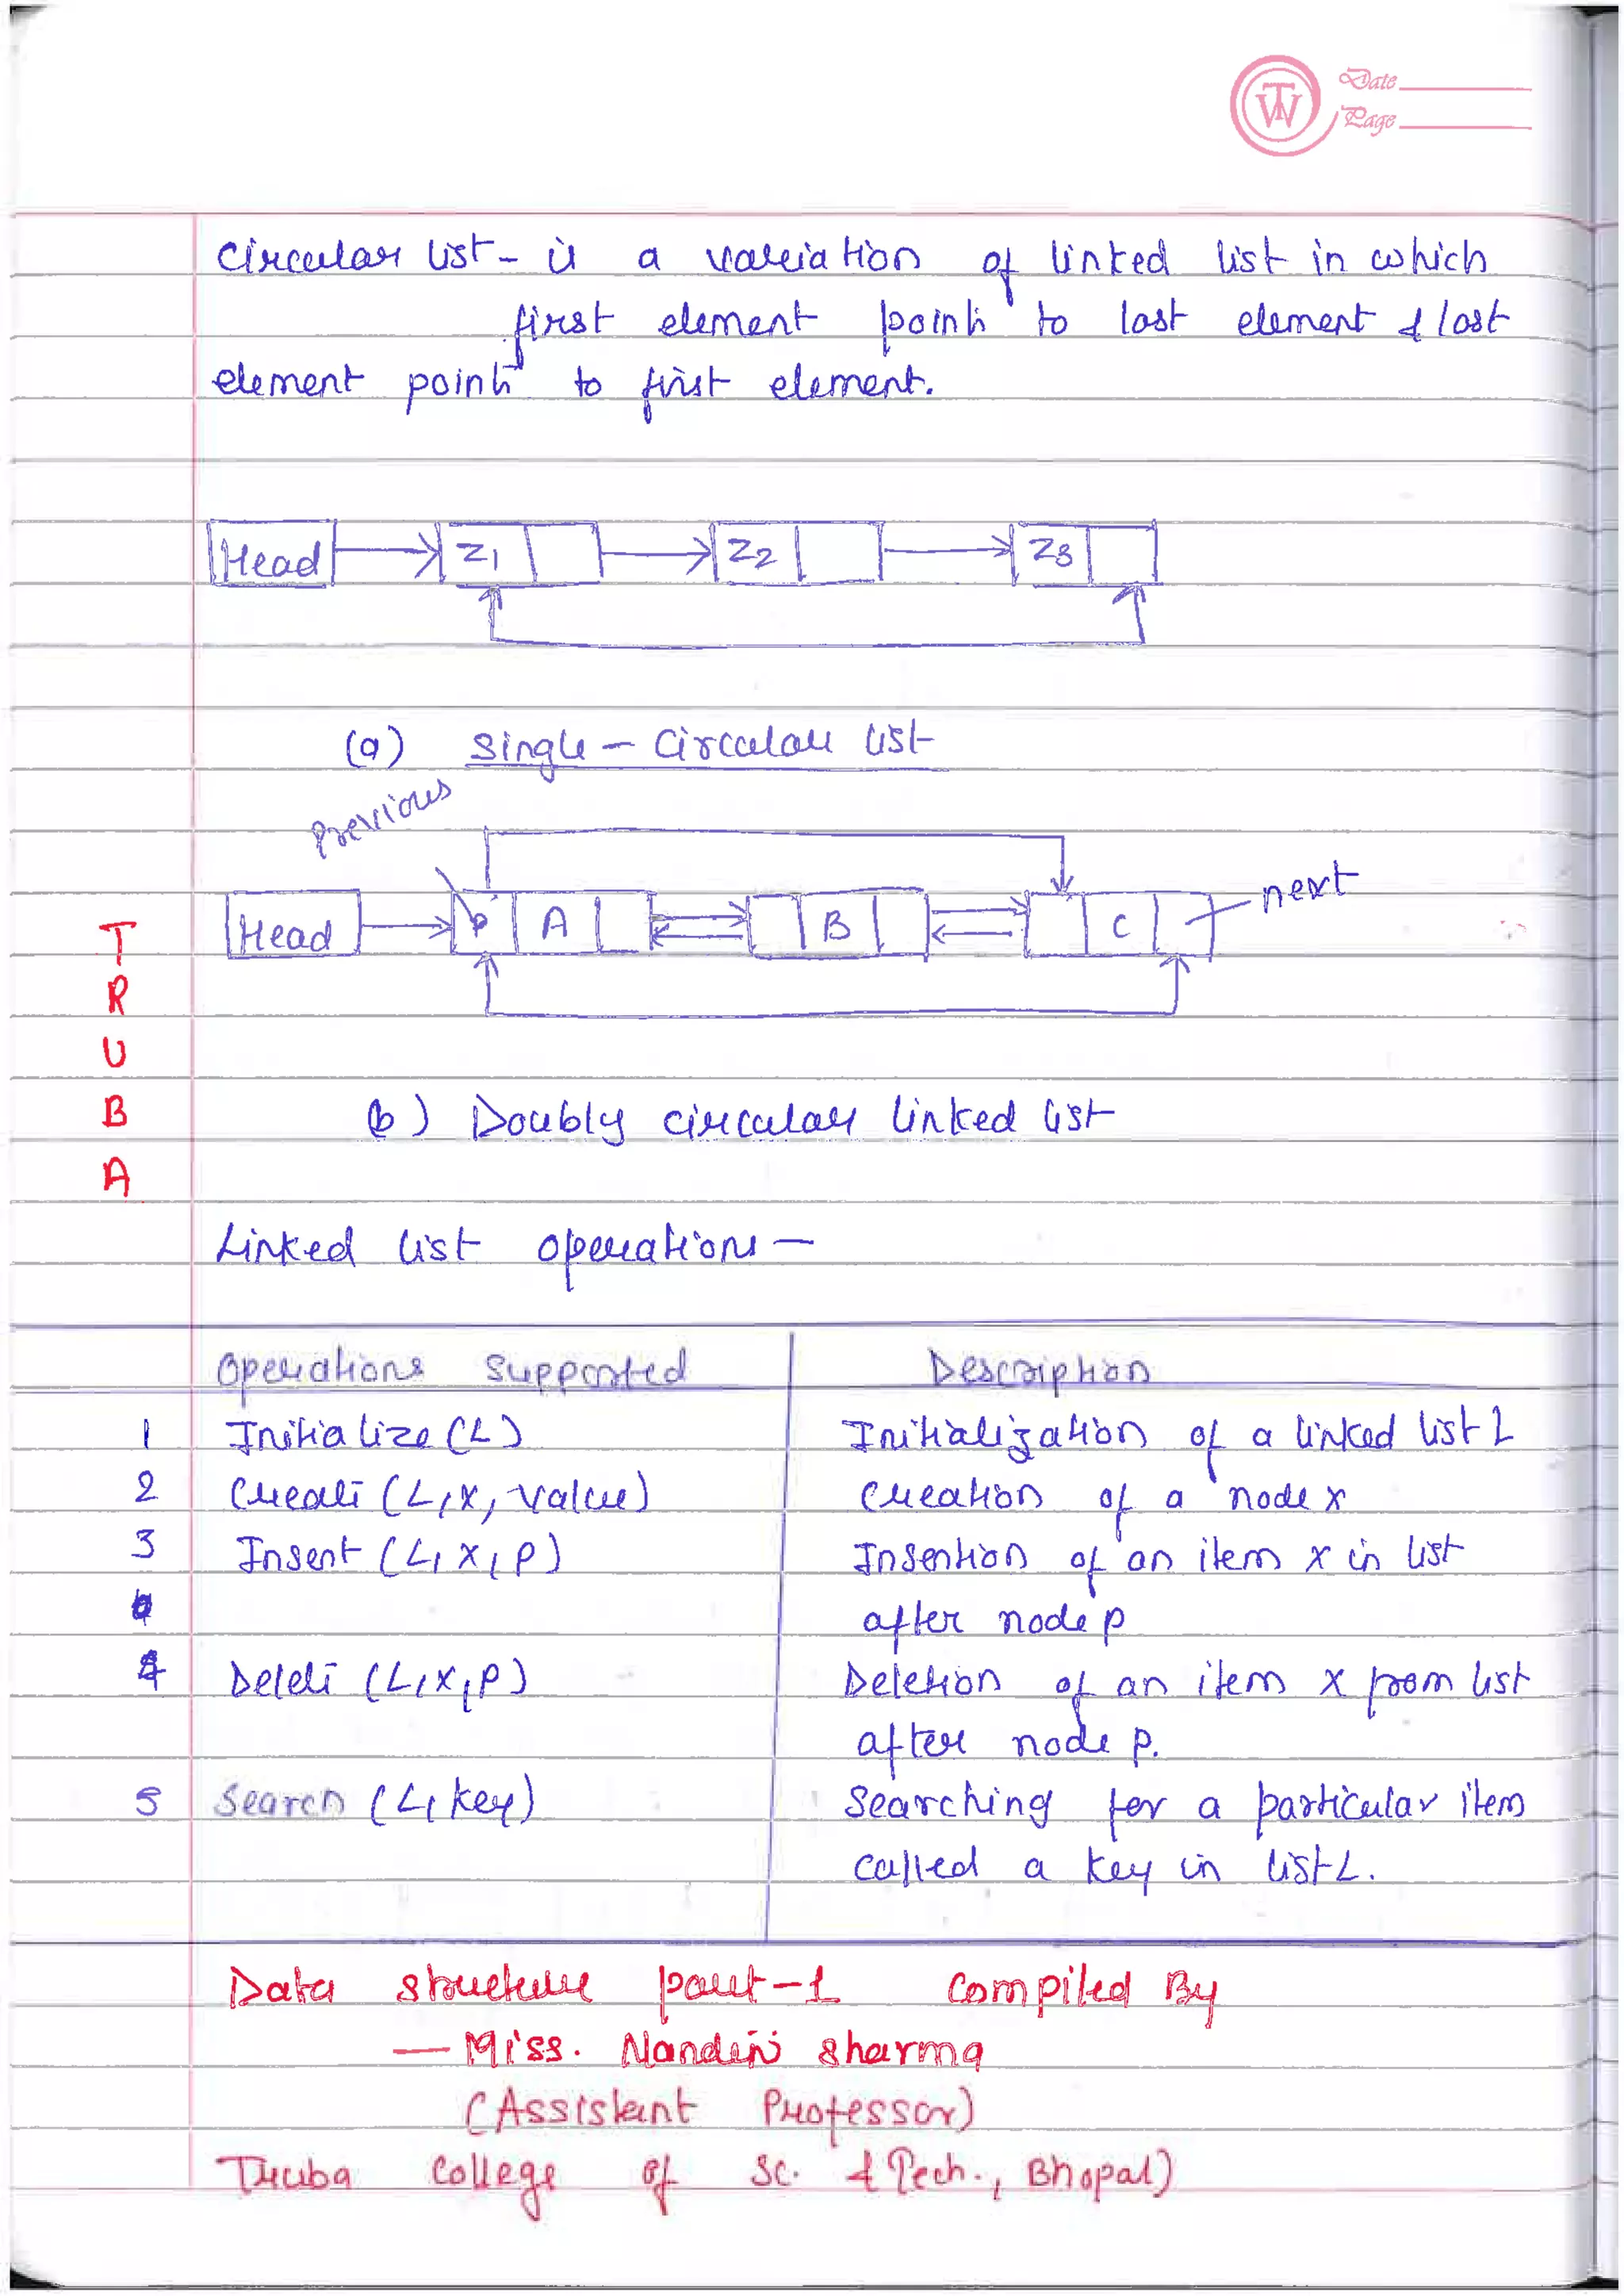 Date
Page
TW
Circular list - is a variation of linked list in which
first element points to last element & last
element points to first element.
Head Z1 Z2 Z3
(a) Single - Circular list
Previous
next
Head P A B C
(b) Doubly circular linked list
T
R
U
B
A
Linked list operations -
Operations Supported Description
1 Initialize (L) Initialization of a linked list L
2 Create (L, x, value) Creation of a node x
3 Insert (L, x, p) Insertion of an item x in list
after node p
4 Delete (L, x, p) Deletion of an item x from list
after node p.
5 Search (L, key) Searching for a particular item
called a key in list L.
Data structure part-1 Compiled By
- Miss. Nandini Sharma
(Assistant Professor)
Truba College of Sc. & Tech., Bhopal)